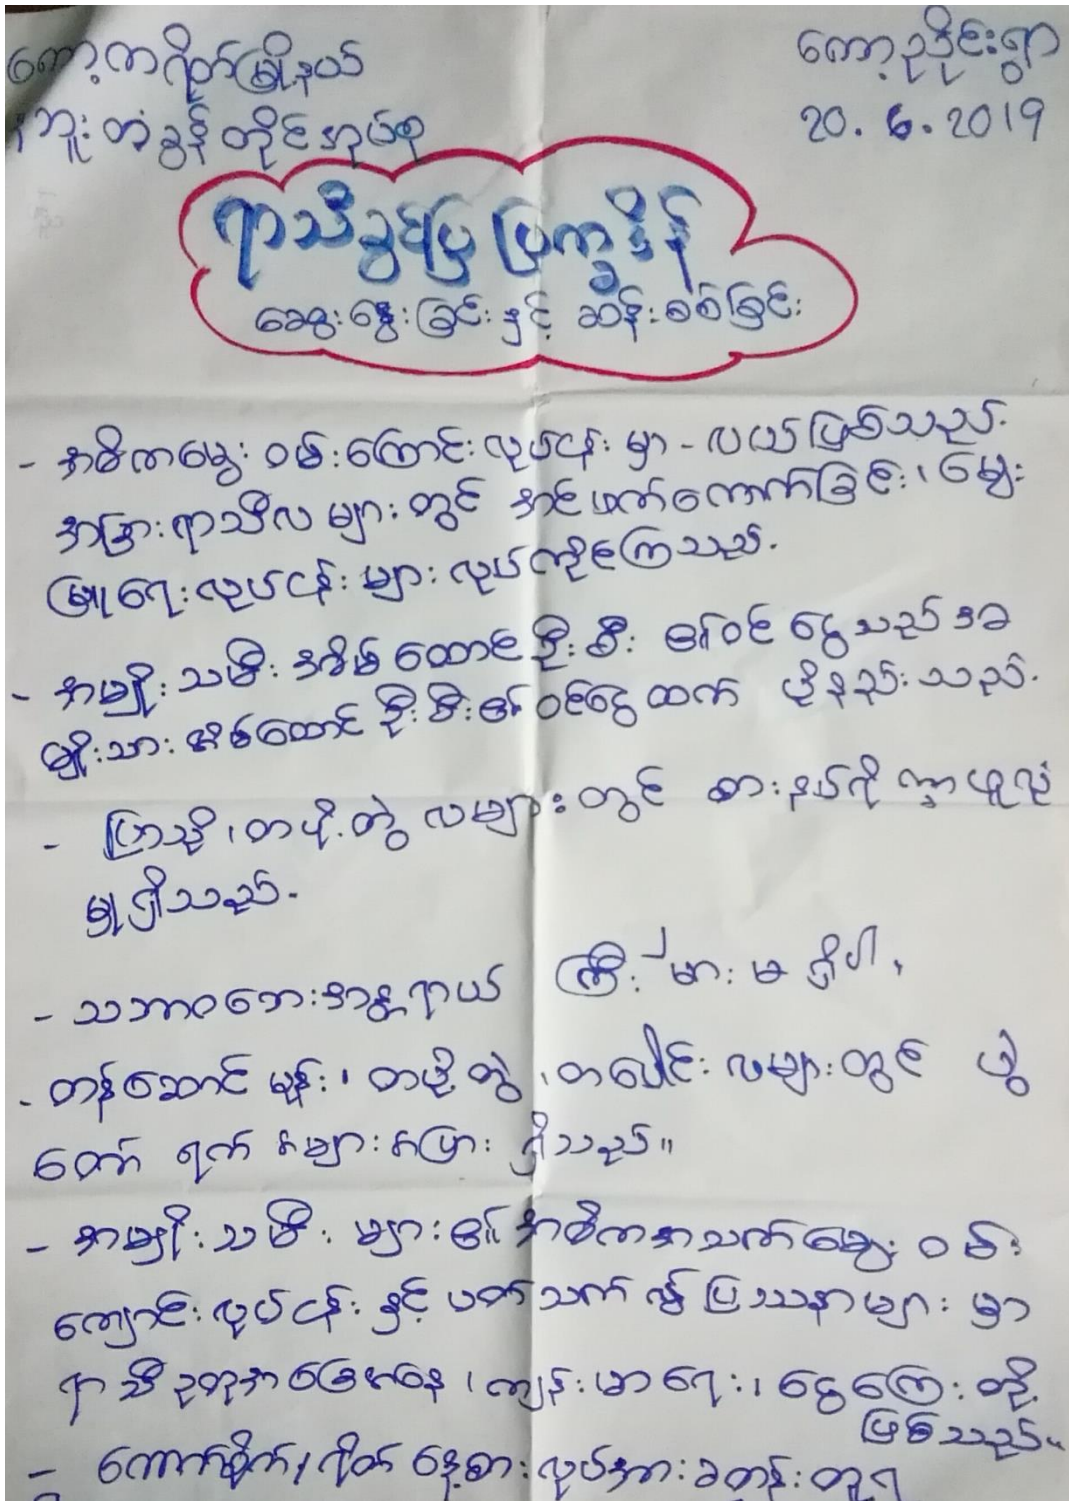 ကော့ကရိတ်မြို့နယ်
ကော့ညိုင်းရွာ
တံခွန်တိုင်အုပ်စု
20.6.2019
ရာသီခွင်ပြ ပြက္ခဒိန်
ဆွေးနွေးခြင်း နှင့် ဆန်းစစ်ခြင်း
- အဓိကမွေးဝမ်းကြောင်းလုပ်ငန်းမှာ - လယ်ဖြစ်သည်.
အခြားရာသီလများတွင် အင်ဖက်ကောက်ခြင်း၊ မွေး
မြူရေးလုပ်ငန်းများ လုပ်ကိုင်ကြသည်.
- အမျိုးသမီး အိမ်ထောင်ဦးစီး ၏ဝင်ငွေသည် အ
မျိုးသား အိမ်ထောင်ဦးစီး၏ ဝင်ငွေထက် ပိုနည်းသည်.
- ပြာသို၊ တပို့တွဲ လများတွင် စားနပ်ရိက္ခာဖူလုံ
မှုရှိသည်.
- သဘာဝဘေးအန္တရာယ် ကြီးမားမရှိပါ၊
- တန်ဆောင်မုန်း၊ တပို့တွဲ၊ တပေါင်းလများတွင် ပွဲ
တော် ရက်များပြား ရှိသည်။
- အမျိုးသမီး များ၏ အဓိကအသက်မွေး ဝမ်း
ကျောင်းလုပ်ငန်း နှင့် ပတ်သက်၍ ပြဿနာများ မှာ
ရာသီဥတုအခြေအနေ၊ ကျန်းမာရေး၊ ငွေကြေး တို့
ဖြစ်သည်။
- ကောက်စိုက်/ရိတ် နေ့စားလုပ်အားခတန်းတူရ